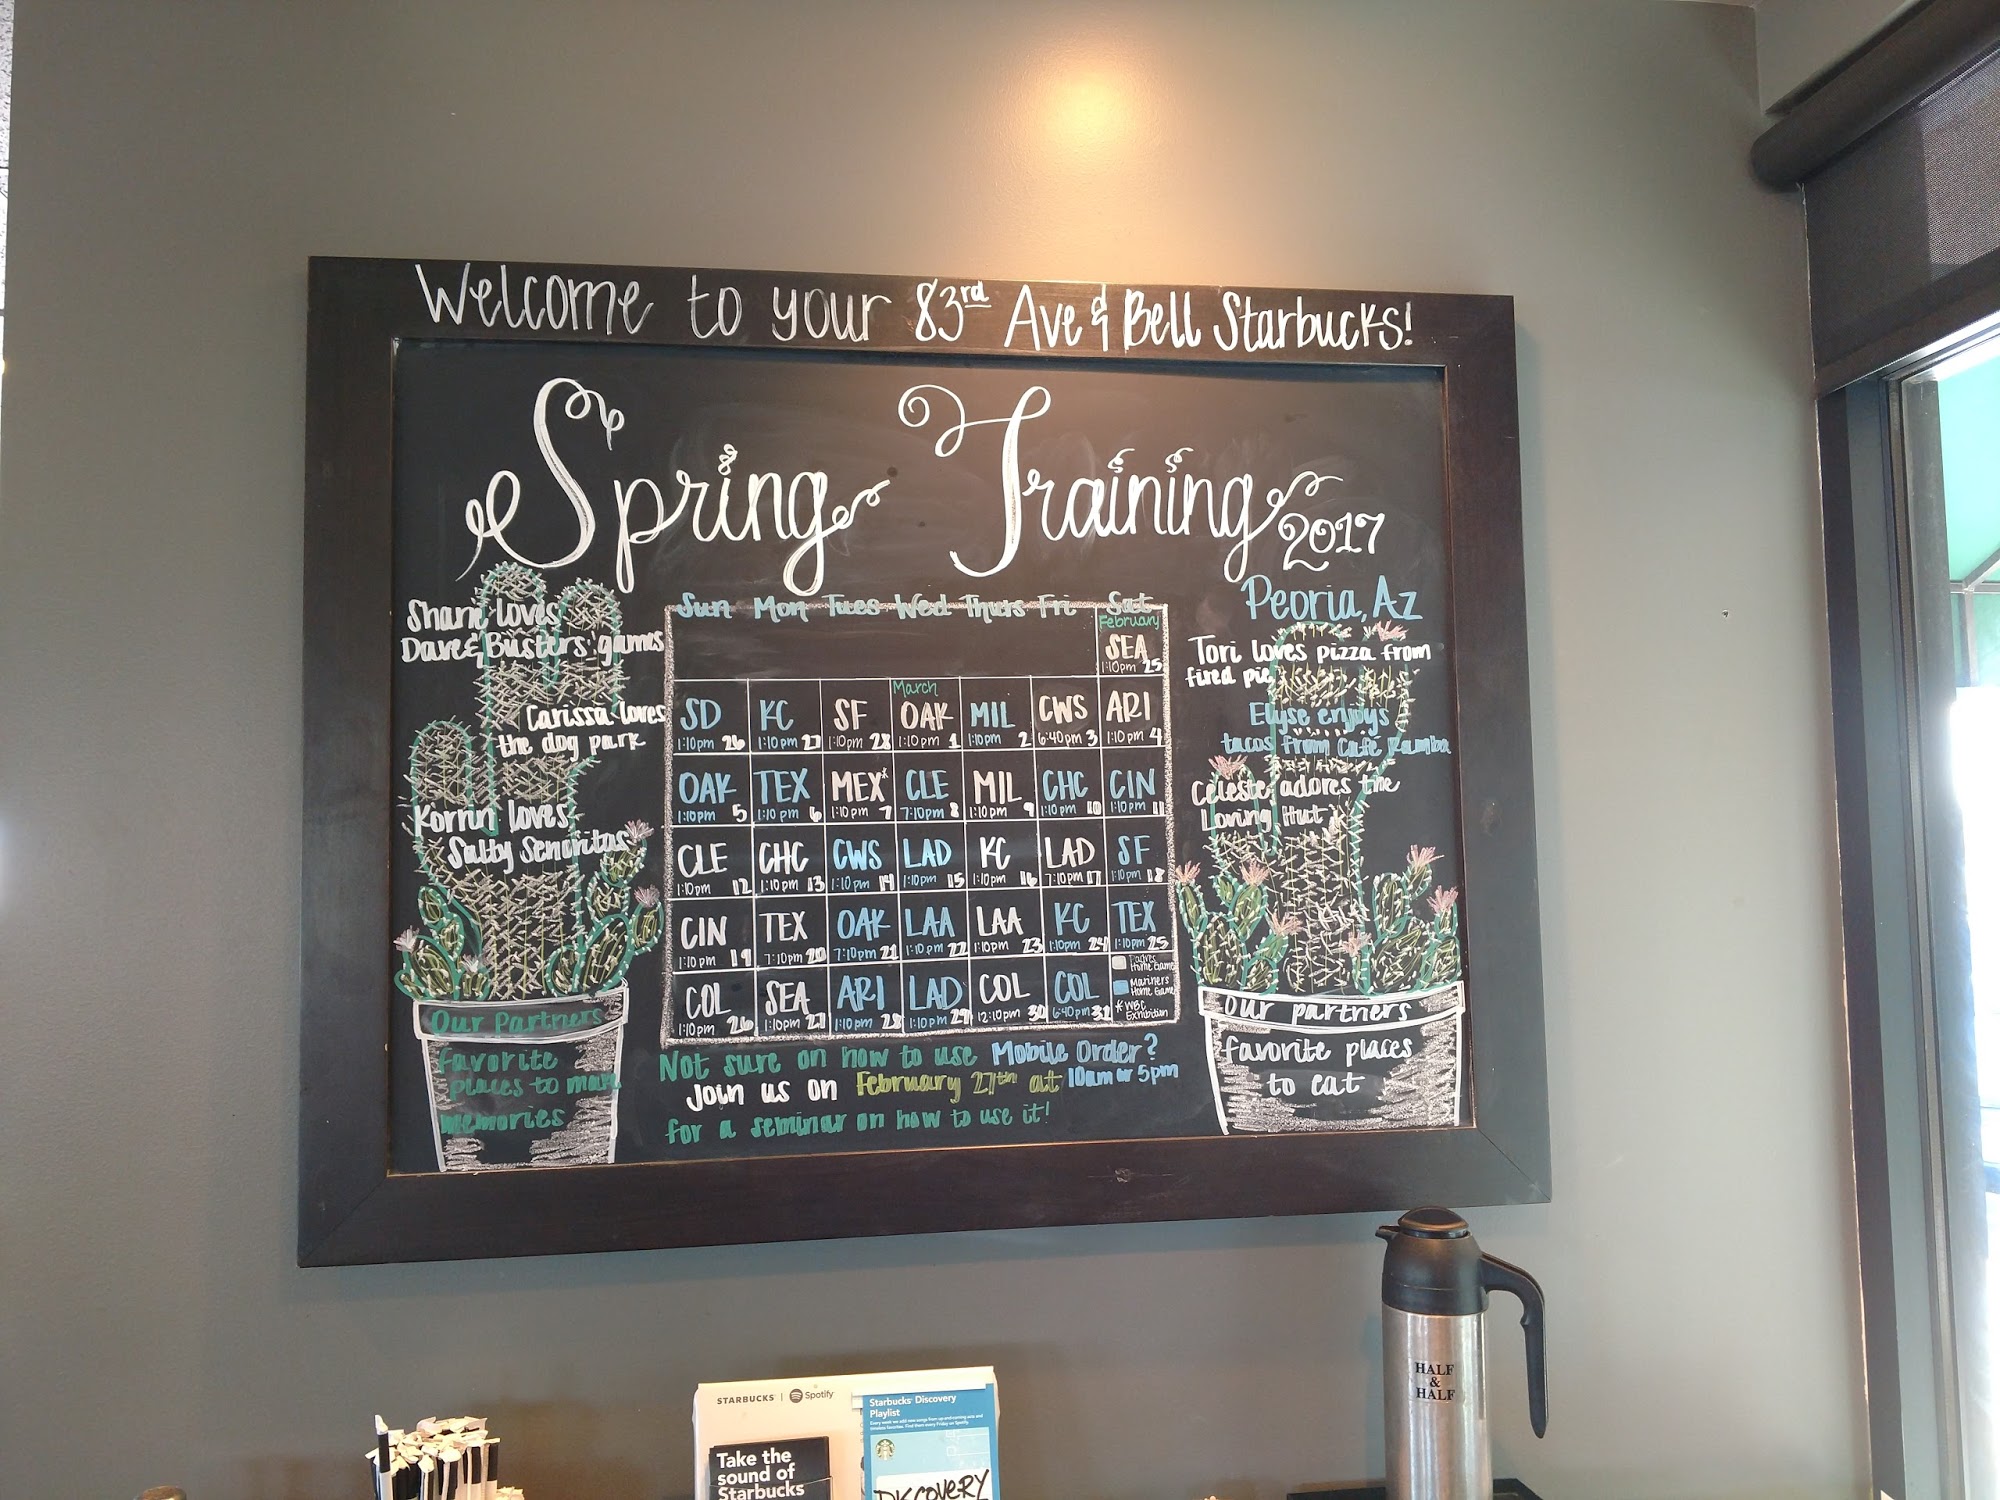 Welcome to your 83rd Ave & Bell Starbucks!
Spring Training 2017
Peoria, Az
Shane loves
Dave & Busters' games
Carissa loves
the dog park
Korrin loves
Salty Senoritas
Our Partners
favorite
places to make
memories
Sun Mon Tues Wed Thurs Fri Sat
February
SEA
1:10pm 25
March
SD KC SF OAK MIL CWS ARI
1:10pm 26 1:10pm 27 1:10pm 28 1:10pm 1 1:10pm 2 6:40pm 3 1:10pm 4
OAK TEX MEX* CLE MIL CHC CIN
1:10pm 5 1:10pm 6 1:10pm 7 7:10pm 8 1:10pm 9 1:10pm 10 1:10pm 11
CLE CHC CWS LAD KC LAD SF
1:10pm 12 1:10pm 13 1:10pm 14 1:10pm 15 1:10pm 16 7:10pm 17 1:10pm 18
CIN TEX OAK LAA LAA KC TEX
1:10pm 19 7:10pm 20 7:10pm 21 1:10pm 22 1:10pm 23 1:10pm 24 1:10pm 25
COL SEA ARI LAD COL COL
1:10pm 26 1:10pm 27 1:10pm 28 1:10pm 29 12:10pm 30 6:40pm
Padres
Home Game
Mariners
Home Game
* WBC
Exhibition
Not sure on how to use Mobile Order?
Join us on February 27th at 10am or 5pm
for a seminar on how to use it!
Tori loves pizza from
fired pie
Elyse enjoys
tacos from Café Rumba
Celeste adores the
Loving Hut
Our partners
favorite places
to eat
HALF
&
HALF
STARBUCKS | Spotify
Take the
sound of
Starbucks
Starbucks Discovery
Playlist
DISCOVERY